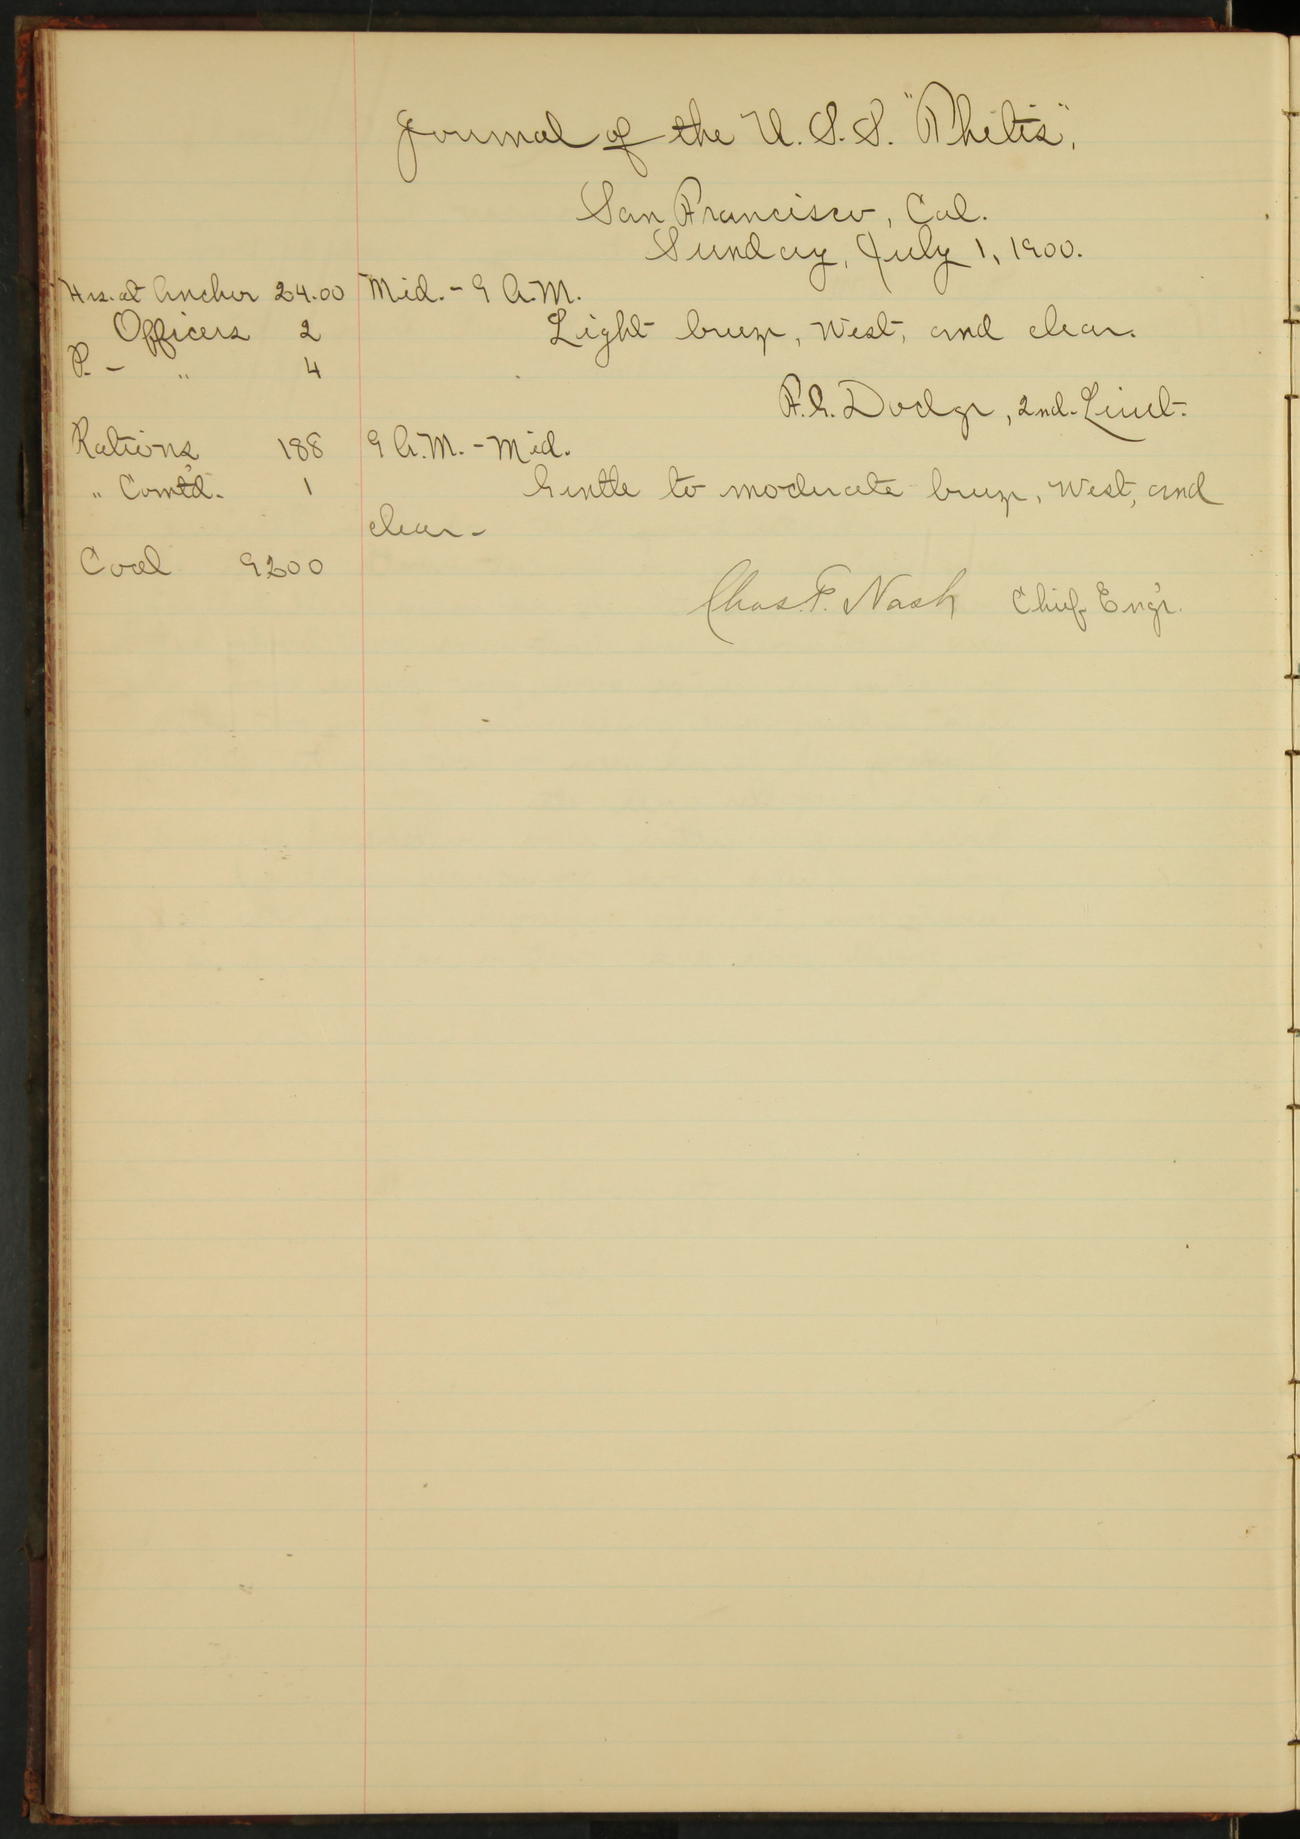 Journal of the U. S. S. "Thetis",
San Francisco, Cal.
Sunday, July 1, 1900.
Hrs. at Anchor 24.00 Mid. - 9 A.M.
Officers 2 Light breeze, West, and clear.
P. - " 4
F. G. Dodge, 2nd. Lieut.
Rations 188 9 A.M. - Mid.
" Com't'd. 1 Gentle to moderate breeze, West, and
clear -
Coal 9200
Chas. F. Nash Chief Eng'r.